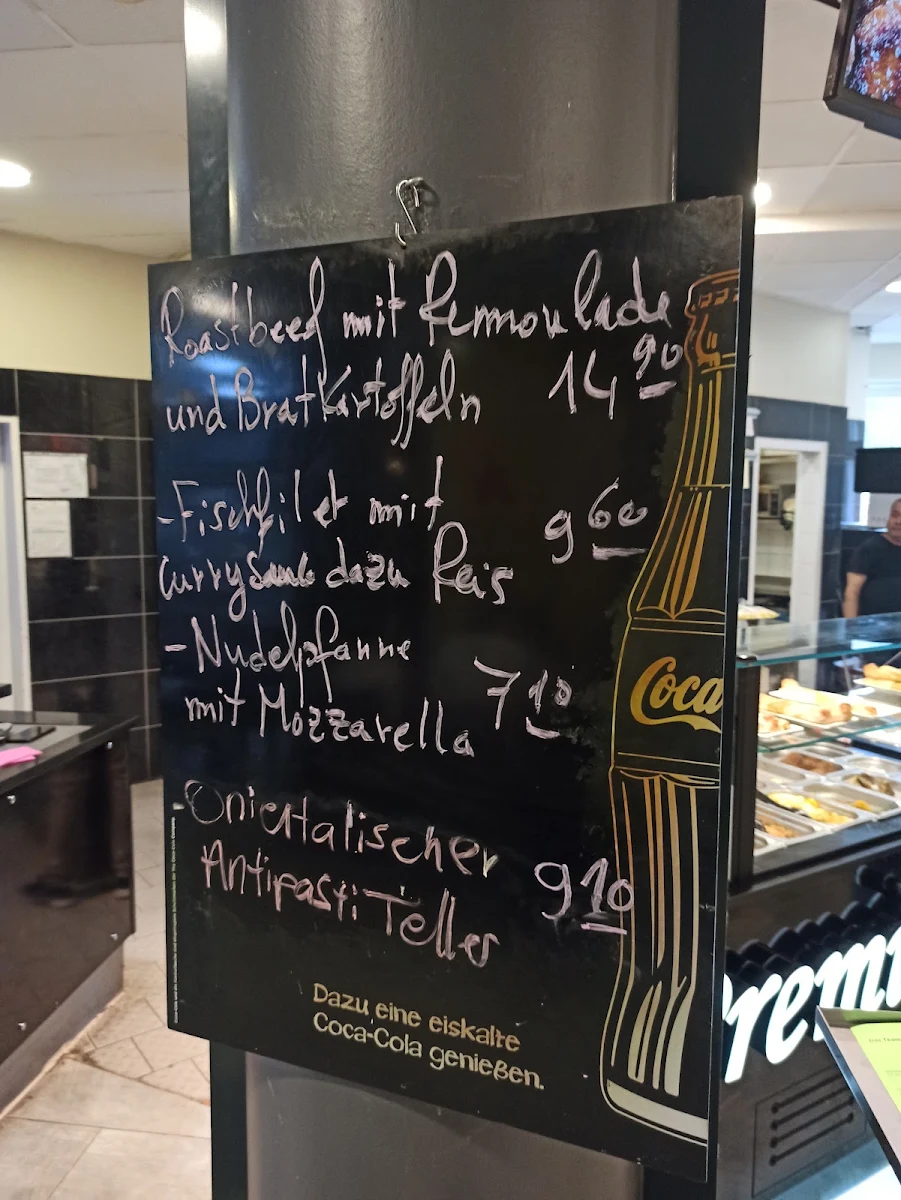 Roastbeef mit Remoulade
und Bratkartoffeln 14 90
-Fischfilet mit 9 60
Currysauce dazu Reis
-Nudelpfanne
mit Mozzarella 7 10
-Oriental​ischer
Antipasti Teller 9 10
Dazu eine eiskalte
Coca-Cola genießen.
Coca
Premi